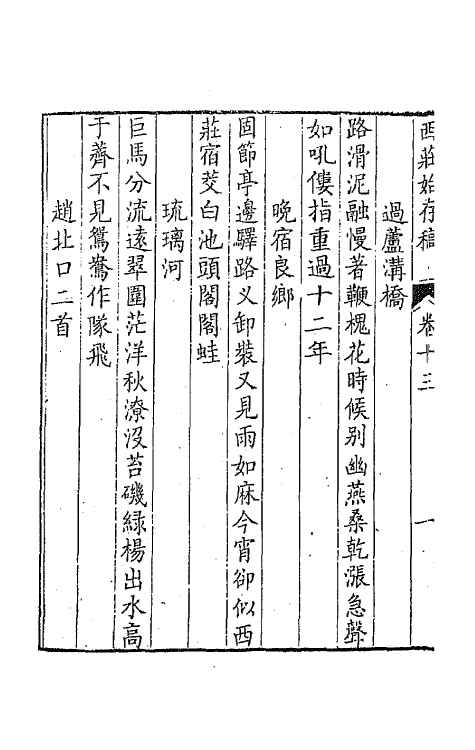 西莊始存稿　卷十三　一
過蘆溝橋
路滑泥融慢著鞭槐花時候别幽燕桑乾漲急聲
如吼僂指重過十二年
晚宿良鄉
固節亭邊驛路乂卸裝又見雨如麻今宵卻似西
莊宿茭白池頭閣閣蛙
琉璃河
巨馬分流遠翠圍茫洋秋潦没苔磯緑楊出水高
于薺不見鴛鴦作隊飛
趙北口二首